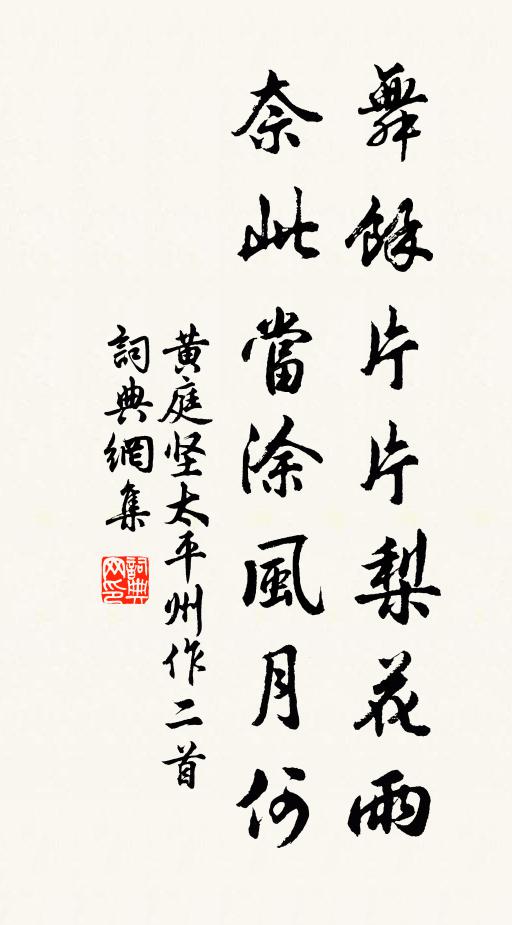 舞餘片片梨花雨
奈此當涂風月何
黃庭坚太平州作二首
詞典網集
詞典网印